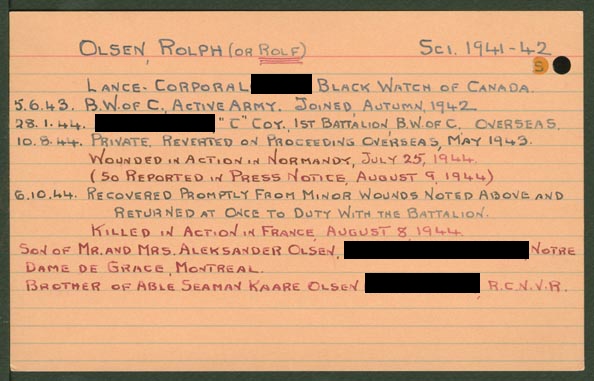 OLSEN, ROLPH (OR ROLF) SCI. 1941-42
S
LANCE-CORPORAL BLACK WATCH OF CANADA.
5.6.43. B.W. OF C., ACTIVE ARMY. JOINED, AUTUMN, 1942
28.1.44. "C" COY., 1ST BATTALION, B.W. OF C. OVERSEAS.
10.8.44. PRIVATE, REVERTED ON PROCEEDING OVERSEAS, MAY 1943.
WOUNDED IN ACTION IN NORMANDY, JULY 25, 1944.
(SO REPORTED IN PRESS NOTICE, AUGUST 9, 1944)
6.10.44. RECOVERED PROMPTLY FROM MINOR WOUNDS NOTED ABOVE AND
RETURNED AT ONCE TO DUTY WITH THE BATTALION.
KILLED IN ACTION IN FRANCE, AUGUST 8, 1944.
SON OF MR. AND MRS. ALEKSANDER OLSEN, NOTRE
DAME DE GRACE, MONTREAL.
BROTHER OF ABLE SEAMAN KAARE OLSEN R.C.N.V.R.